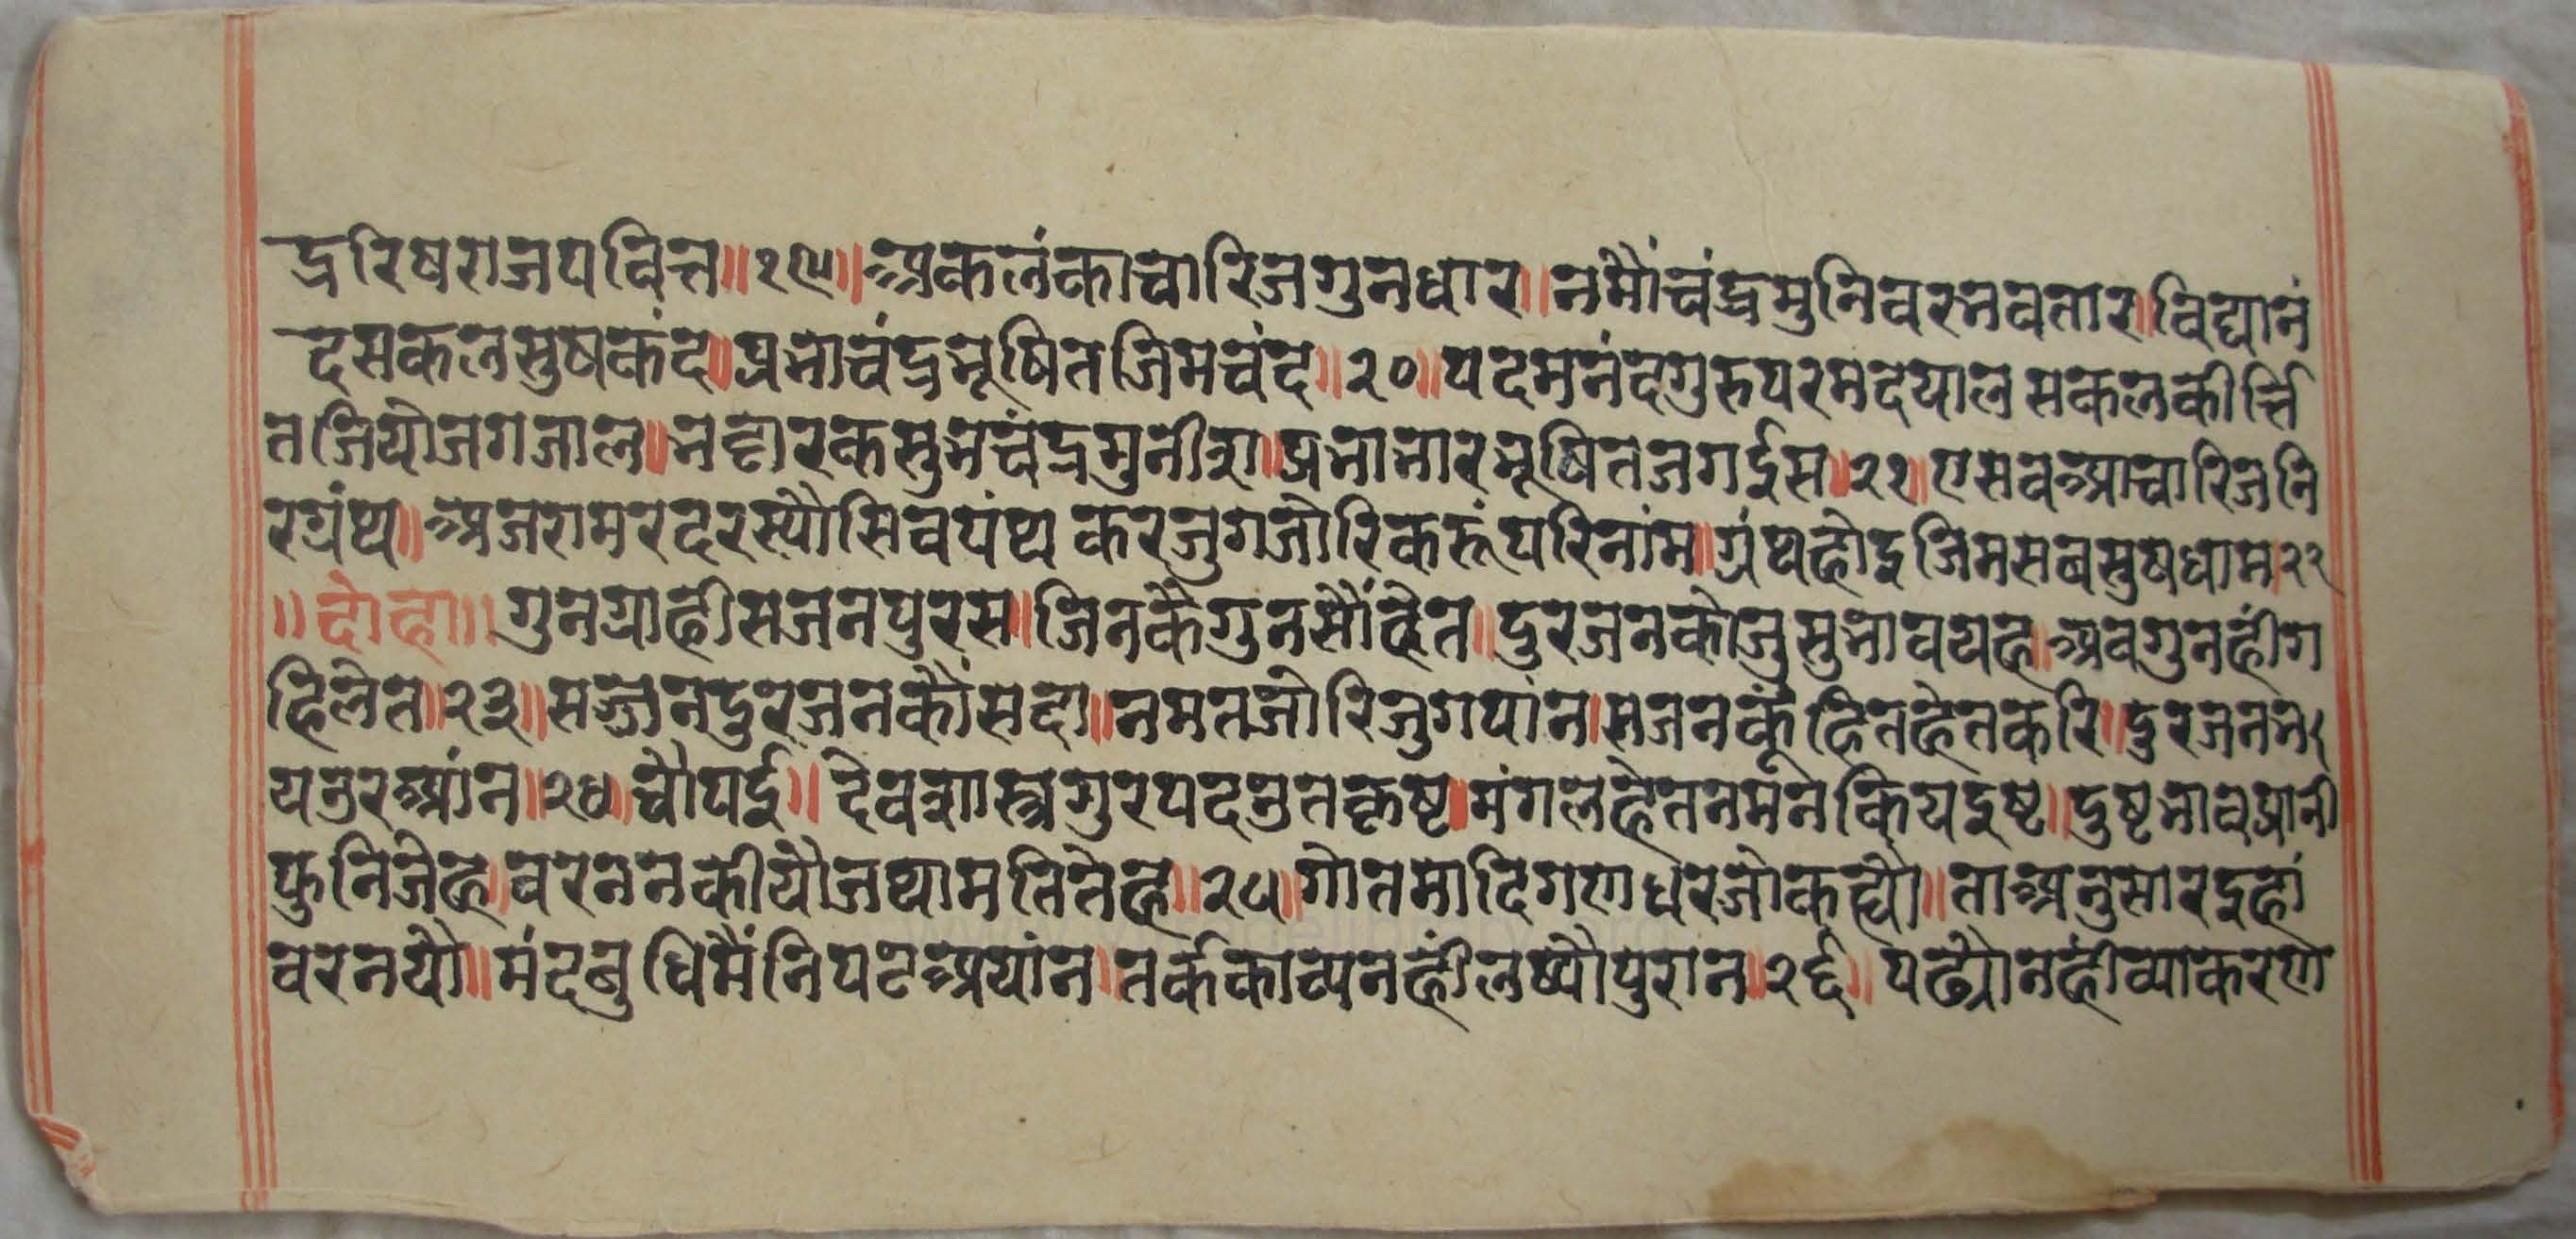 द्ररिषराजपवित्त॥१९॥अकलंकाचारिजगुनधार॥नमौंचंद्रमुनिवरभवतार।विद्यानं
दसकलसुषकंद॥प्रभाचंद्रभूषितजिमचंद॥२०॥पदमनंदगुरुपरमदयालसकलकीर्त्ति
तजियोजगजाल॥भट्टारकसुभचंद्रमुनीश॥प्रभाभारभूषितजगईस॥२१॥एसबआचारिजनि
रग्रंथ॥अजरामरदरस्यौसिवपंथकरजुगजोरिकरूंपरिनांम॥ग्रंथहोइजिमसबसुषधाम२२
॥दोहा॥गुनग्राहीसजनपुरस॥जिनकैगुनसौंहेत॥दुरजनकोजुसुभावयह॥अवगुनहींग
हिलेत॥२३॥सज्जनदुरजनकौंसदा॥नमतजोरिजुगपांन॥सजनकूंहितहेतकरि॥दुरजनभ
यउरआंन॥२४॥चौपई॥देवशास्त्रगुरपदनुतकृष्ट॥मंगलहेतनमनकियइष्ट॥दुष्टभावप्रानी
फुनिजेह॥वरननकीयौजथामतितेह॥२५॥गोतमादिगणधरजोकह्यौ॥ताअनुसारइहां
वरनयौ॥मंदबुधिमैंनिपटअयांन॥तर्ककाव्यनहींलष्यौपुरान॥२६॥पढ्यौनहींव्याकरण